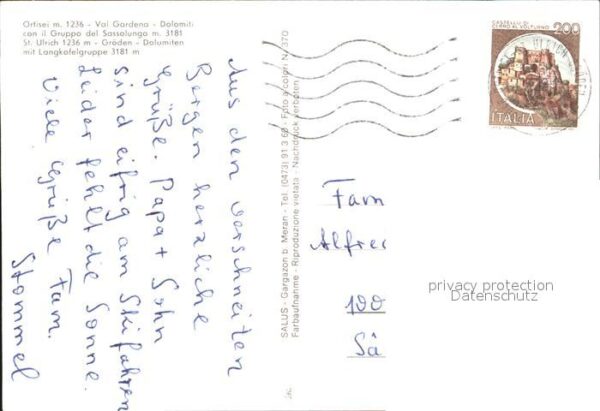 Ortisei m. 1236 - Val Gardena - Dolomiti
con il Gruppo del Sassolungo m. 3181
St. Ulrich 1236 m - Gröden - Dolomiten
mit Langkofelgruppe 3181 m
Aus den verschneiten
Bergen herzliche
Grüße. Papa + Sohn
sind eifrig am Skifahren
Leider fehlt die Sonne.
Viele Grüße Fam.
Stommel
SALUS - Gargazon b. Meran - Tel. (0473) 91 3 66 - Foto a colori N. 370
Farbaufnahme - Riproduzione vietata - Nachdruck verboten
CASTELLO DI
CERRO AL VOLTURNO
200
ITALIA
Fam
Alfred
100
Sä
privacy protection
Datenschutz